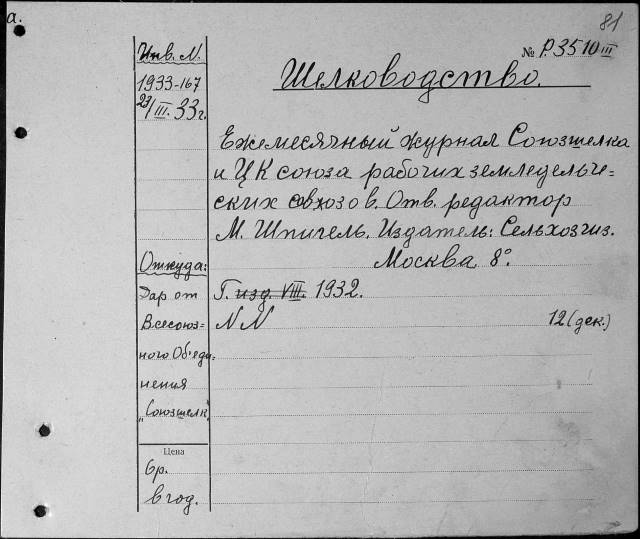 а.
81
Инв. N.
№ Р.3510 III
1933-167
23/III.33г.
Шелководство.
Ежемесячный журнал Союзшелка
и ЦК союза рабочих земледельче=
ских совхозов. Отв. редактор
М. Шпигель. Издатель: Сельхозгиз.
Москва 8°.
Откуда:
Дар от
Всесоюз=
ного Об'еди=
нения
"Союзшелк"
Г. изд. VIII. 1932.
NN 12 (дек.)
Цена
6р.
в год.